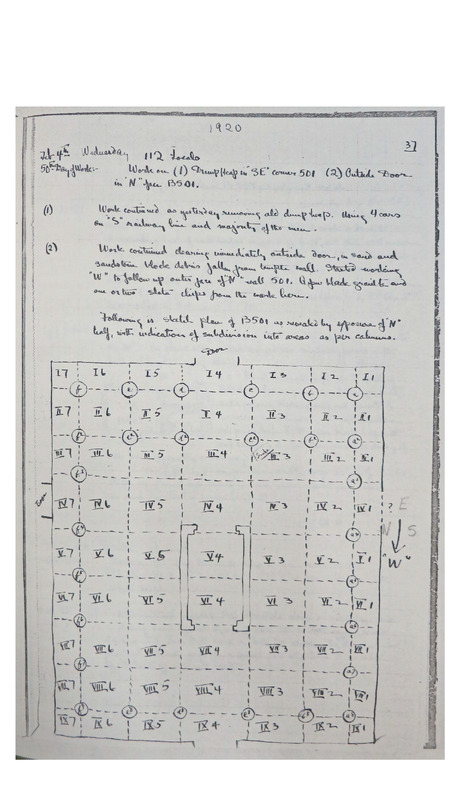 1920
37
Feb. 4th Wednesday 112 Locals
50th Day of Work:- Work on (1) Dump Heap in "SE" corner 501 (2) Outside Door
in "N" face B501.
(1) Work continued as yesterday removing old dump heap. Using 4 cars
on "S" railway line and majority of the men.
(2) Work continued clearing immediately outside door, in sand and
sandstone block debris fallen from temple wall. Started working
"W" to follow up outer face of "N" wall 501. A few black granite and
one or two "slate" chips from the work here.
Following is sketch plan of B501 as revealed by exposure of "N"
half, with indications of subdivision into areas as per columns.
Door
I7 I6 I5 I4 I3 I2 I1
II7 II6 II5 II4 II3 II2 II1
III7 III6 III5 III4 III3 III2 III1
Door
IV7 IV6 IV5 IV4 IV3 IV2 IV1
? E
N S
"W"
V7 V6 V5 V4 V3 V2 V1
VI7 VI6 VI5 VI4 VI3 VI2 VI1
VII7 VII6 VII5 VII4 VII3 VII2 VII1
VIII7 VIII6 VIII5 VIII4 VIII3 VIII2 VIII1
IX7 IX6 IX5 IX4 IX3 IX2 IX1